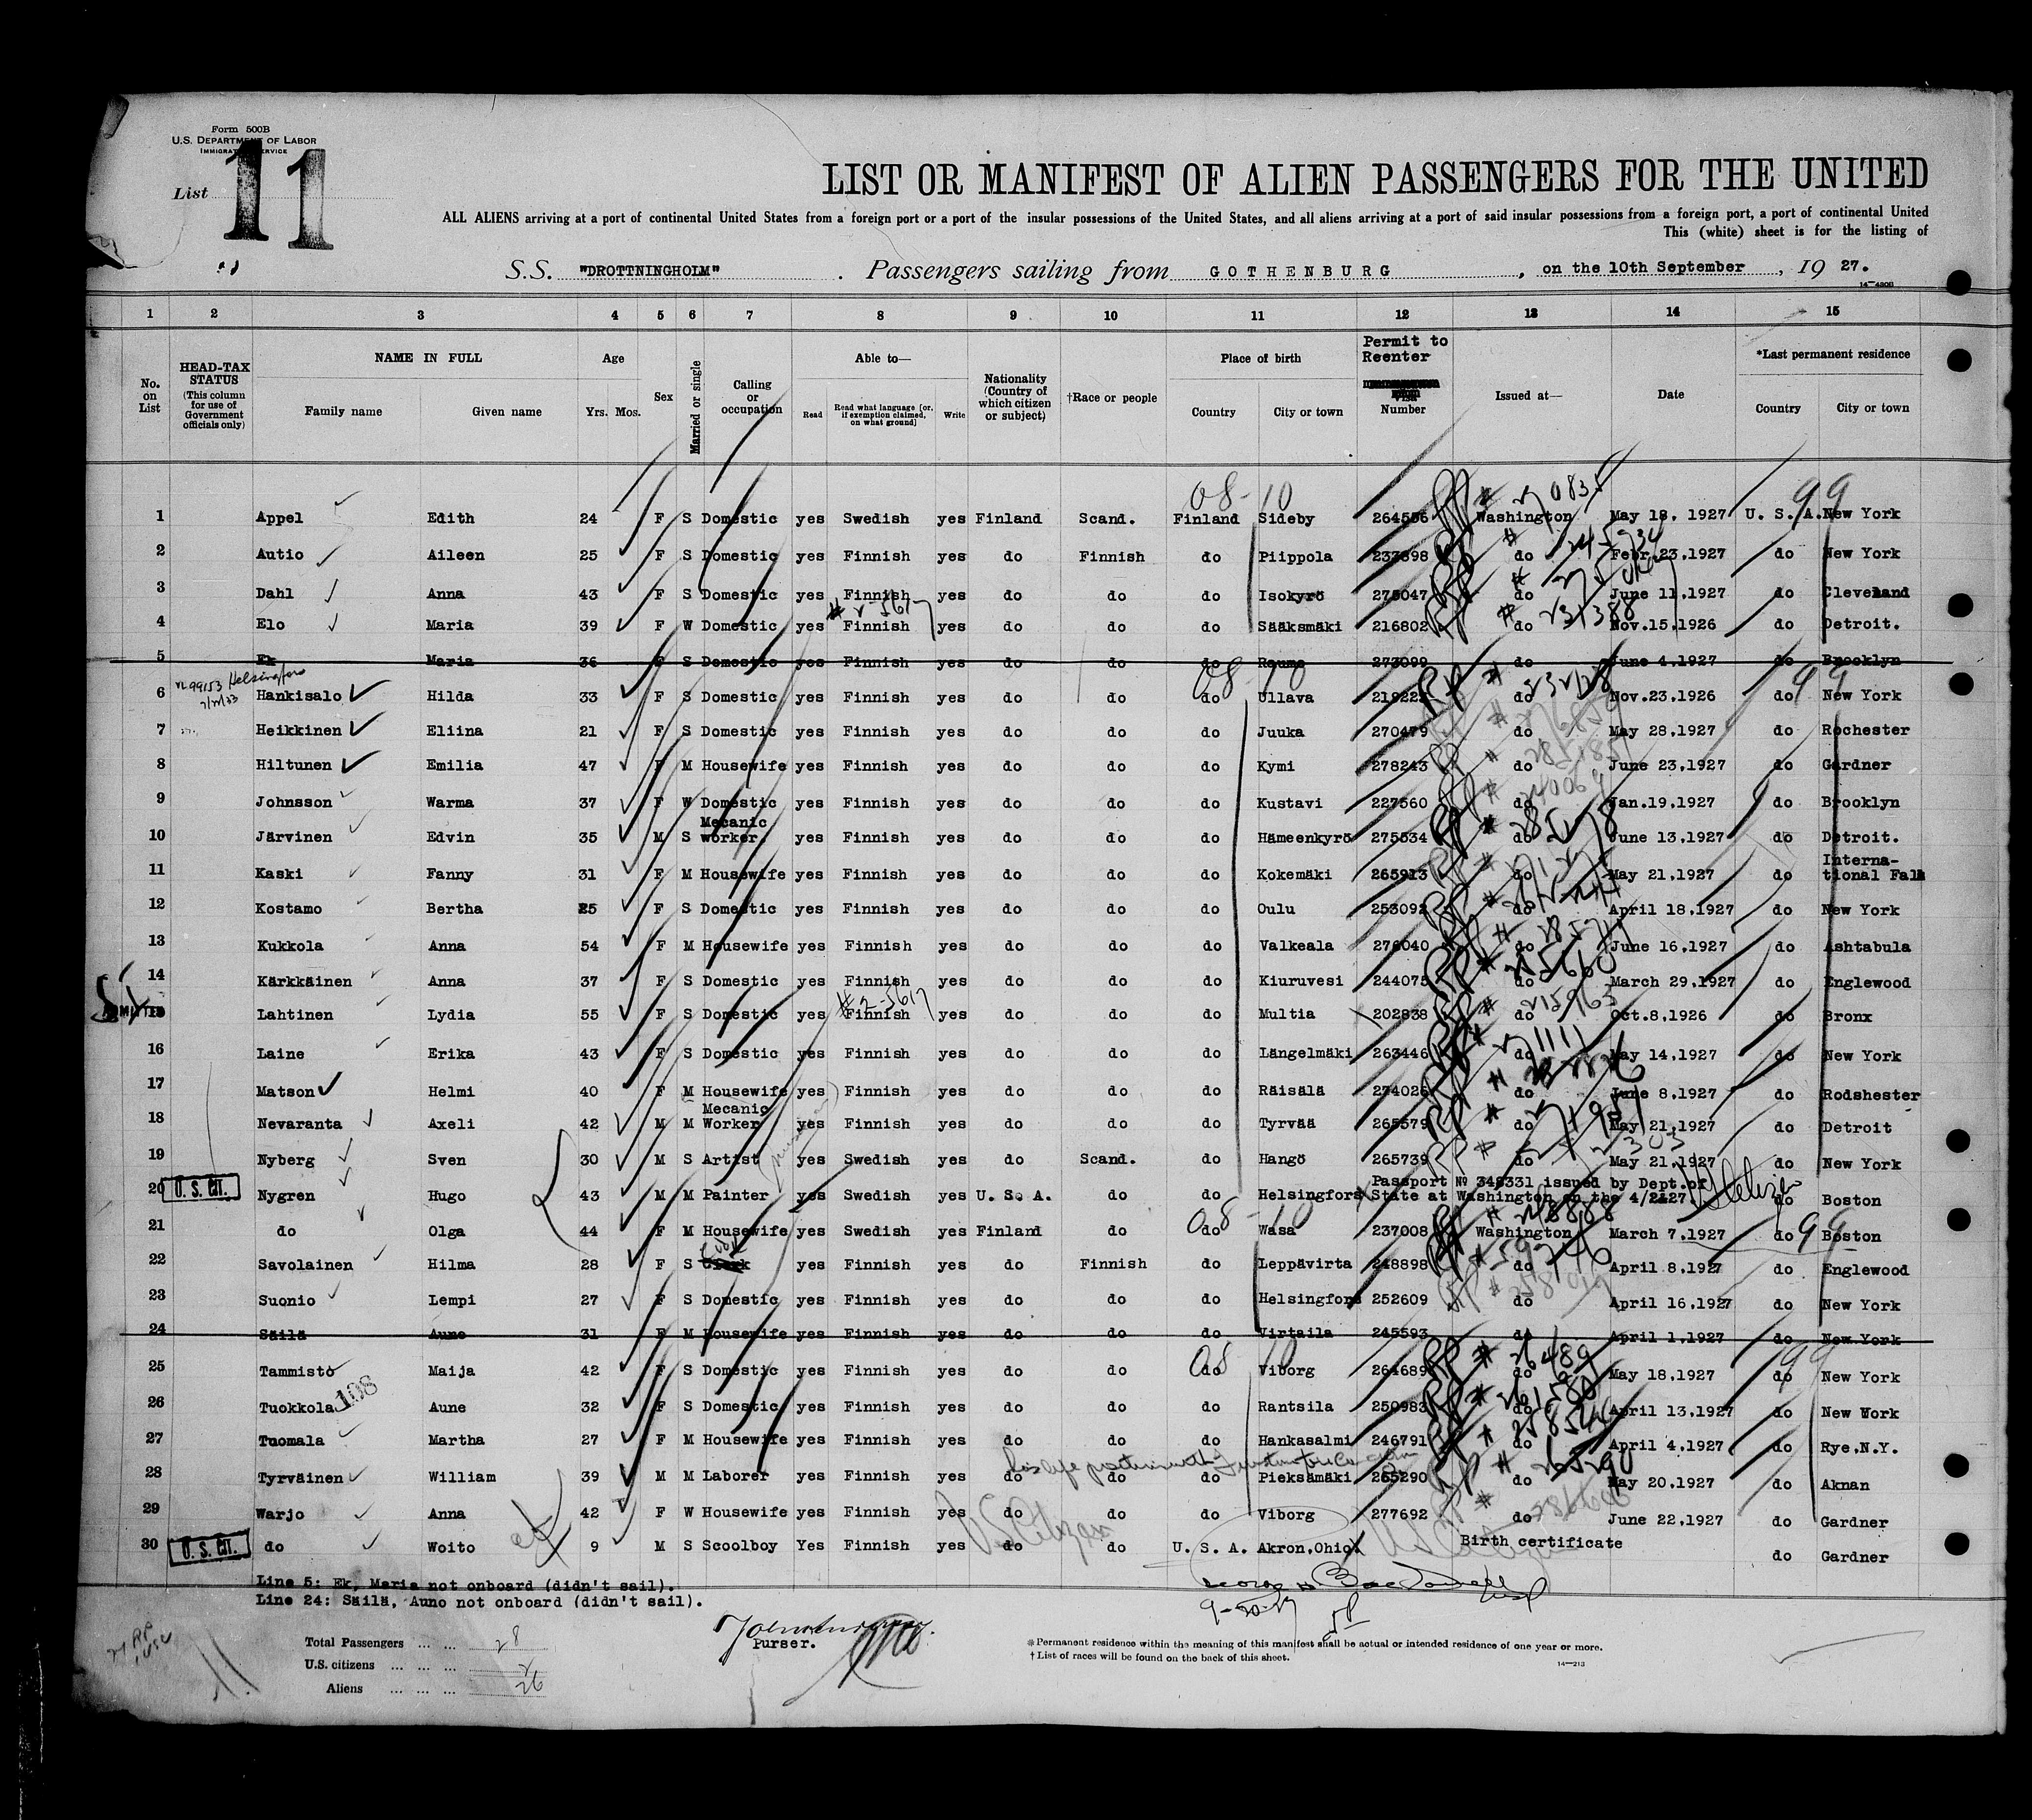 Form 500B
U.S. DEPARTMENT OF LABOR
IMMIGRATION SERVICE
List 11
LIST OR MANIFEST OF ALIEN PASSENGERS FOR THE UNITED
ALL ALIENS arriving at a port of continental United States from a foreign port or a port of the insular possessions of the United States, and all aliens arriving at a port of said insular possessions from a foreign port, a port of continental United
This (white) sheet is for the listing of
S.S. "DROTTNINGHOLM" . Passengers sailing from GOTHENBURG, on the 10th September, 19 27.
1 2 3 4 5 6 7 8 9 10 11 12 13 14 15
No. on List
HEAD-TAX STATUS (This column for use of Government officials only)
NAME IN FULL Family name Given name
Age Yrs. Mos.
Sex
Married or single
Calling or occupation
Able to— Read Read what language [or, if exemption claimed, on what ground] Write
Nationality (Country of which citizen or subject)
†Race or people
Place of birth Country City or town
Permit to Reenter Number
Issued at—
Date
*Last permanent residence Country City or town
08-10 99
1 Appel Edith 24 F S Domestic yes Swedish yes Finland Scand. Finland Sideby 264556 Washington May 18, 1927 U. S. A. New York
2 Autio Aileen 25 F S Domestic yes Finnish yes do Finnish do Piippola 233898 do Febr.23,1927 do New York
3 Dahl Anna 43 F S Domestic yes Finnish yes do do do Isokyrö 275047 do June 11,1927 do Cleveland
4 Elo Maria 39 F W Domestic yes Finnish yes do do do Sääksmäki 216802 do Nov.15,1926 do Detroit.
5 Ek Maria 36 F S Domestic yes Finnish yes do do do Raumo 273099 do June 4,1927 do Brooklyn
6 Hankisalo Hilda 33 F S Domestic yes Finnish yes do do do Ullava 219222 do Nov.23,1926 do New York
7 Heikkinen Eliina 21 F S Domestic yes Finnish yes do do do Juuka 270479 do May 28,1927 do Rochester
8 Hiltunen Emilia 47 F M Housewife yes Finnish yes do do do Kymi 278243 do June 23,1927 do Gardner
9 Johnsson Warma 37 F W Domestic yes Finnish yes do do do Kustavi 227560 do Jan.19,1927 do Brooklyn
10 Järvinen Edvin 35 M S Mecanic worker. yes Finnish yes do do do Hämeenkyrö 275534 do June 13,1927 do Detroit.
11 Kaski Fanny 31 F M Housewife yes Finnish yes do do do Kokemäki 265913 do May 21,1927 do Interna-tional Fall
12 Kostamo Bertha 25 F S Domestic yes Finnish yes do do do Oulu 253092 do April 18,1927 do New York
13 Kukkola Anna 54 F M Housewife yes Finnish yes do do do Valkeala 276040 do June 16,1927 do Ashtabula
14 Kärkkäinen Anna 37 F S Domestic yes Finnish yes do do do Kiuruvesi 244075 do March 29,1927 do Englewood
15 Lahtinen Lydia 55 F S Domestic yes Finnish yes do do do Multia 202838 do Oct.8,1926 do Bronx
16 Laine Erika 43 F S Domestic yes Finnish yes do do do Längelmäki 263446 do May 14,1927 do New York
17 Matson Helmi 40 F M Housewife yes Finnish yes do do do Räisälä 274026 do June 8,1927 do Rodshester
18 Nevaranta Axeli 42 M M Mecanic Worker yes Finnish yes do do do Tyrvää 265579 do May 21,1927 do Detroit
19 Nyberg Sven 30 M S Artist yes Swedish yes do Scand. do Hangö 265739 do May 21,1927 do New York
20 U. S. CIT. Nygren Hugo 43 M M Painter yes Swedish yes U. S. A. do do Helsingfors Passport № 348331 issued by Dept.of State at Washington on the 4/2127 do Boston
21 do Olga 44 F M Housewife yes Swedish yes Finland do do Wasa 237008 Washington March 7,1927 do Boston
22 Savolainen Hilma 28 F S Clerk yes Finnish yes do Finnish do Leppävirta 248898 do April 8,1927 do Englewood
23 Suonio Lempi 27 F S Domestic yes Finnish yes do do do Helsingfors 252609 do April 16,1927 do New York
24 Säilä Auno 31 F M Housewife yes Finnish yes do do do Virtaila 245593 do April 1,1927 do New York
25 Tammisto Maija 42 F S Domestic yes Finnish yes do do do Viborg 264689 do May 18,1927 do New York
26 Tuokkola 108 Aune 32 F S Domestic yes Finnish yes do do do Rantsila 250983 do April 13,1927 do New Work
27 Tuomala Martha 27 F M Housewife yes Finnish yes do do do Hankasalmi 246791 do April 4,1927 do Rye.N.Y.
28 Tyrväinen William 39 M M Laborer yes Finnish yes do do do Pieksämäki 265290 do May 20,1927 do Aknan
29 Warjo Anna 42 F W Housewife yes Finnish yes do do do Viborg 277692 do June 22,1927 do Gardner
30 U. S. CIT. do Woito 9 M S Scoolboy Yes Finnish yes do do U. S. A. Akron,Ohio Birth certificate do Gardner
Line 5: Ek, Maria not onboard (didn't sail).
Line 24: Säilä, Auno not onboard (didn't sail).
9-20-27
Purser.
Total Passengers ... ... 28
U.S. citizens ... ... ... 2
Aliens ... ... ... 26
* Permanent residence within the meaning of this manifest shall be actual or intended residence of one year or more.
† List of races will be found on the back of this sheet.
14—213